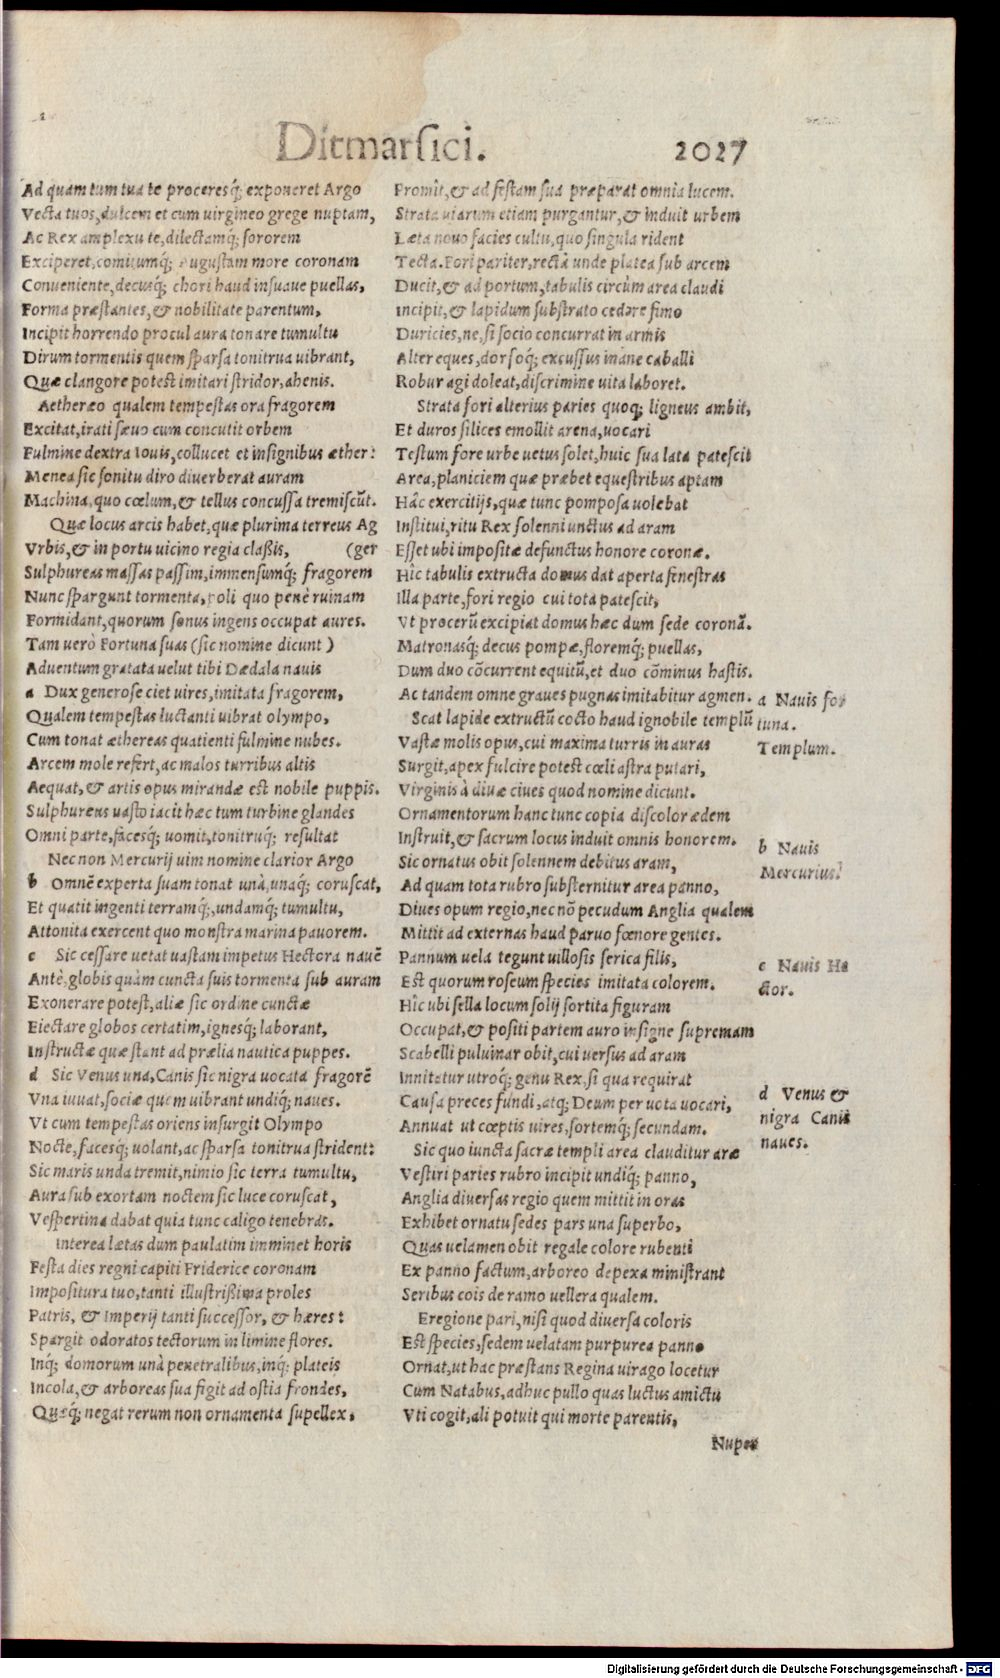 Ditmarsici. 2027
Ad quam tum tua te proceresq́; exponeret Argo
Vecta tuos, dulcem et cum virgineo grege nuptam,
Ac Rex amplexu te, dilectamq́; sororem
Exciperet, comitumq́; Augustam more coronam
Conueniente, decusq́; chori haud insuaue puellas,
Forma præstantes, & nobilitate parentum,
Incipit horrendo procul aura tonare tumultu
Dirum tormentis quem sparsa tonitrua uibrant,
Quæ clangore potest imitari stridor, ahenis.
Aethereo qualem tempestas ora fragorem
Excitat, irati sæuo cum concutit orbem
Fulmine dextra Iouis, collucet et insignibus æther:
Menea sic sonitu diro diuerberat auram
Machina, quo cœlum, & tellus concussa tremiscũt.
Quæ locus arcis habet, quæ plurima terreus Ag
Vrbis, & in portu uicino regia claßis, (ger
Sulphureas massas passim, immensumq́; fragorem
Nunc spargunt tormenta, poli quo penè ruinam
Formidant, quorum sonus ingens occupat aures.
Tam uerò Fortuna suas (sic nomine dicunt)
Aduentum gratata uelut tibi Dædala nauis
a Dux generose ciet uires, imitata fragorem,
Qualem tempestas luctanti uibrat olympo,
Cum tonat æthereas quatienti fulmine nubes.
Arcem mole refert, ac malos turribus altis
Aequat, & artis opus mirandæ est nobile puppis.
Sulphureus uasto iacit hæc tum turbine glandes
Omni parte, facesq́; uomit, tonitruq́; resultat
Nec non Mercurij uim nomine clarior Argo
b Omnẽ experta suam tonat unà, unaq́; coruscat,
Et quatit ingenti terramq́;, undamq́; tumultu,
Attonita exercent quo monstra marina pauorem.
c Sic cessare uetat uastam impetus Hectora nauẽ
Antè, globis quàm cuncta suis tormenta sub auram
Exonerare potest, aliæ sic ordine cunctæ
Eiectare globos certatim, ignesq́; laborant,
Instructæ quæ stant ad prælia nautica puppes.
d Sic Venus una, Canis sic nigra uocata fragorẽ
Vna iuuat, sociæ quem uibrant undiq́; naues.
Vt cum tempestas oriens insurgit Olympo
Nocte, facesq́; uolant, ac sparsa tonitrua strident:
Sic maris unda tremit, nimio sic terra tumultu,
Aura sub exortam noctem sic luce coruscat,
Vespertina dabat quia tunc caligo tenebras.
Interea lætas dum paulatim imminet horis
Festa dies regni capiti Friderice coronam
Impositura tuo, tanti illustrißima proles
Patris, & Imperij tanti successor, & hæres:
Spargit odoratos tectorum in limine flores.
Inq́; domorum unà penetralibus, inq́; plateis
Incola, & arboreas sua figit ad ostia frondes,
Quæq́; negat rerum non ornamenta supellex,
Promit, & ad festam sua præparat omnia lucem.
Strata uiarum etiam purgantur, & induit urbem
Læta nouo facies cultu, quo singula rident
Tecta. Fori pariter, rectà unde platea sub arcem
Ducit, & ad portum, tabulis circùm area claudi
incipit, & lapidum substrato cedere fimo
Duricies, ne, si socio concurrat in armis
Alter eques, dorsoq́; excussus inane caballi
Robur agi doleat, discrimine uita laboret.
Strata fori alterius paries quoq; ligneus ambit,
Et duros silices emollit arena, uocari
Testum fore urbe uetus solet, huic sua lata patescit
Area, planiciem quæ præbet equestribus aptam
Hâc exercitijs, quæ tunc pomposa uolebat
Institui, ritu Rex solenni unctus ad aram
Esset ubi impositæ defunctus honore coronæ.
Hîc tabulis extructa domus dat aperta fenestras
Illa parte, fori regio cui tota patescit,
Vt procerũ excipiat domus hæc dum sede coronã.
Matronasq́; decus pompæ, floremq́; puellas,
Dum duo cõcurrent equitũ, et duo cõminus hastis.
Ac tandem omne graues pugnas imitabitur agmen.
Scat lapide extructũ cocto haud ignobile templũ
Vastæ molis opus, cui maxima turris in auras
Surgit, apex fulcire potest cœli astra putari,
Virginis à diuæ ciues quod nomine dicunt.
Ornamentorum hanc tunc copia discolor ædem
Instruit, & sacrum locus induit omnis honorem.
Sic ornatus obit solennem debitus aram,
Ad quam tota rubro substernitur area panno,
Diues opum regio, nec nõ pecudum Anglia qualem
Mittit ad externas haud paruo fœnore gentes.
Pannum uela tegunt uillosis serica filis,
Est quorum roseum species imitata colorem.
Hîc ubi sella locum solij sortita figuram
Occupat, & positi partem auro insigne supremam
Scabelli puluinar obit, cui uersus ad aram
Innitetur utroq́; genu Rex, si qua requirat
Causa preces fundi, atq́; Deum per uota uocari,
Annuat ut cœptis uires, sortemq́; secundam.
Sic quo iuncta sacræ templi area clauditur aræ
Vestiri paries rubro incipit undiq́; panno,
Anglia diuersas regio quem mittit in oras
Exhibet ornatu sedes pars una superbo,
Quas uelamen obit regale colore rubenti
Ex panno factum, arboreo depexa ministrant
Seribus cois de ramo uellera qualem.
Eregione pari, nisi quod diuersa coloris
Est species, sedem uelatam purpurea panno
Ornat, ut hac præstans Regina uirago locetur
Cum Natabus, adhuc pullo quas luctus amictu
Vti cogit, ali potuit qui morte parentis,
Nuper
a Nauis for
tuna.
Templum.
b Nauis
Mercurius.
c Nauis He
ctor.
d Venus &
nigra Canis
naues.
Digitalisierung gefördert durch die Deutsche Forschungsgemeinschaft - DFG